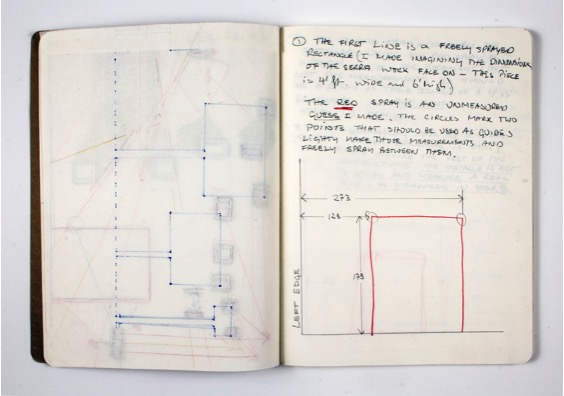 ① THE FIRST LINE IS A FREELY SPRAYED
RECTANGLE (I MADE IMAGINING THE DIMENSIONS
OF THE SERRA WORK FACE ON – THIS PIECE
IS 41 ft. WIDE and 6' high)
THE RED SPRAY IS AN UNMEASURED
GUESS I MADE. THE CIRCLES MARK TWO
POINTS THAT SHOULD BE USED AS GUIDES
LIGHTLY MAKE THESE MEASUREMENTS AND
FREELY SPRAY BETWEEN THEM.
273
123
173
LEFT EDGE